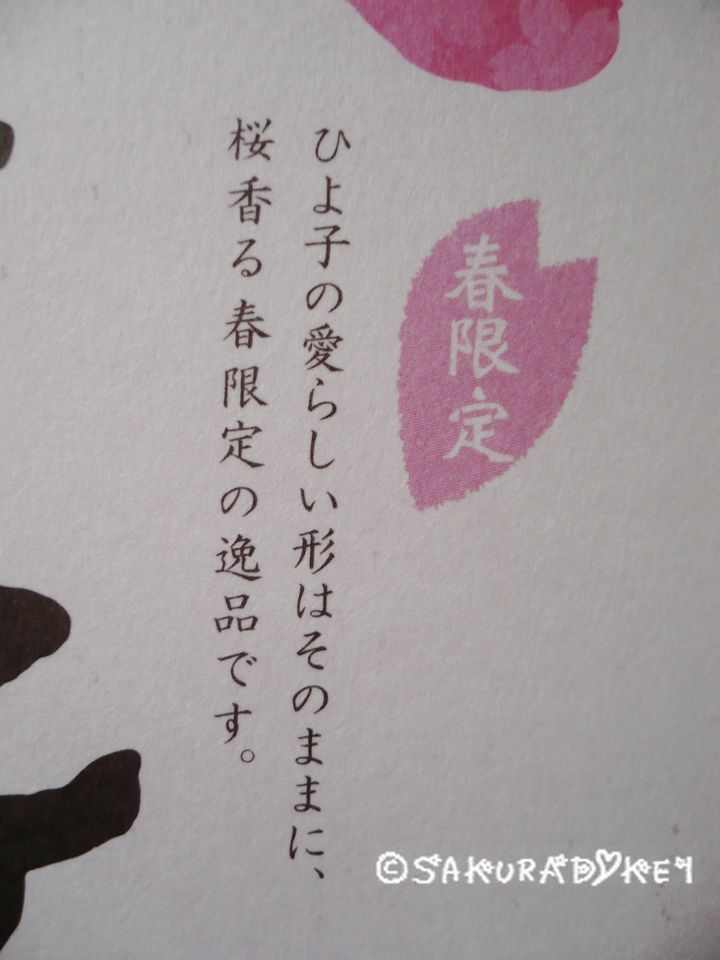 春限定
ひよ子の愛らしい形はそのままに、
桜香る春限定の逸品です。
©SAKURADYKEI